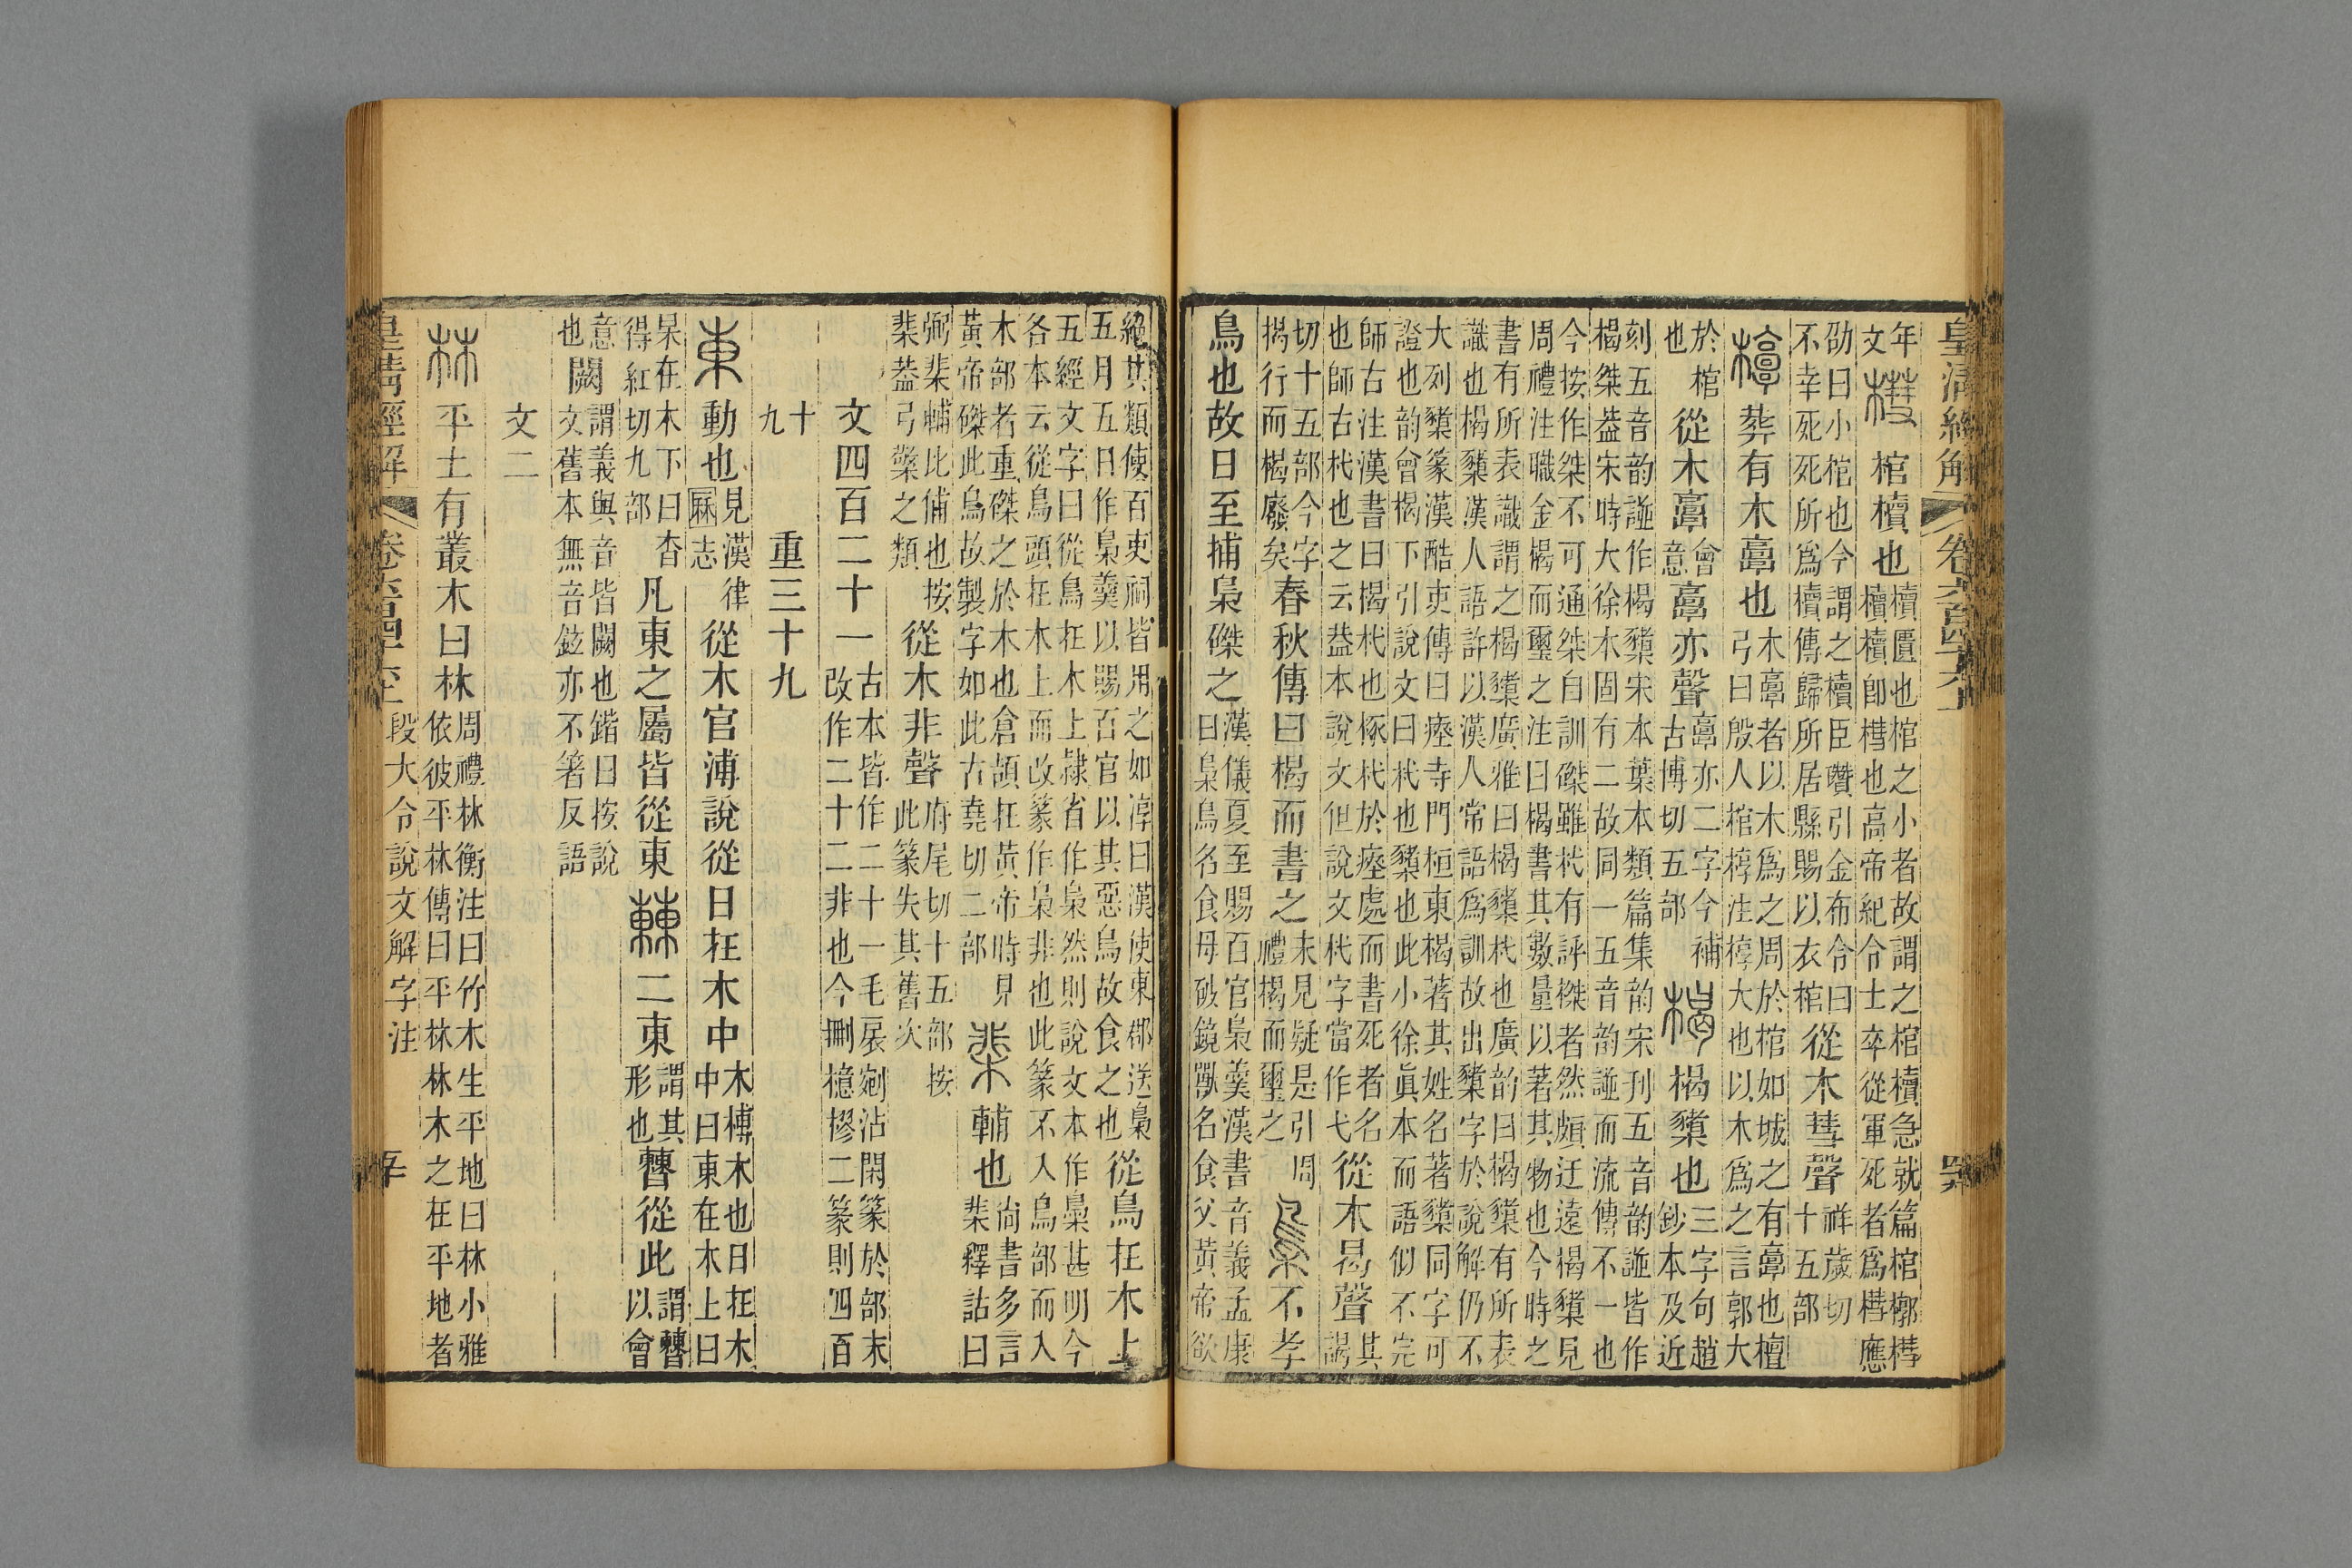 皇清經解
卷六百四十六上
年文槥棺櫝也櫝匱也棺之小者故謂之棺櫝急就篇棺槨槥櫝櫝卽槥也高帝紀令士卒從軍死者爲槥應
劭曰小棺也今謂之櫝臣瓚引金布令曰不幸死死所爲櫝傳歸所居縣賜以衣棺從木彗聲祥歲切十五部
𣝸葬有木𩫏也木𩫏者以木爲之周於棺如城之有𩫏也檀弓曰殷人棺椁注椁大也以木爲之言郭大
於棺也從木𩫏會意𩫏亦聲𩫏亦二字今補古博切五部楬楬櫫也三字句趙鈔本及近
刻五音韵譜作楬櫫宋本葉本類篇集韵宋刊五音韵譜皆作楬桀葢宋時大徐本固有二故同一五音韵譜而流傳不一也
今按作桀不可通桀自訓磔雖杙有評榤者然頗迂遠楬櫫見周禮注職金楬而璽之注曰楬書其數量以著其物也今時之
書有所表識謂之楬櫫廣雅曰楬櫫杙也廣韵曰楬櫫有所表識也楬櫫漢人語許以漢人常語爲訓故出櫫字於說解仍不
大列櫫篆漢酷吏傳曰瘞寺門桓東楬著其姓名著櫫同字可證也韵會楬下引說文曰杙也櫫也此小徐眞本而語似不完
師古注漢書曰楬杙也椓杙於瘞處而書死者名也師古杙也之云葢本說文但說文杙字當作弋從木曷聲其謁
切十五部今字揭行而楬廢矣春秋傳曰楬而書之未見疑是引周禮楬而璽之梟不孝
鳥也故日至捕梟磔之漢儀夏至賜百官梟羹漢書音義孟康曰梟鳥名食母破鏡獸名食父黃帝欲
絕其類使百吏祠皆用之如淳曰漢使東郡送梟五月五日作梟羹以賜百官以其惡鳥故食之也從鳥在木上
五經文字曰從鳥在木上隸省作梟然則說文本作梟甚明今各本云從鳥頭在木上而改篆作梟非也此篆不入鳥部而入
木部者重磔之於木也倉頡在黃帝時見黃帝磔此鳥故製字如此古堯切二部棐輔也尙書多言棐釋詁曰
弼棐輔比俌也按棐葢弓檠之類從木非聲府尾切十五部按此篆失其舊次
文四百二十一古本皆作二十一毛扆剜沾閑篆於部末改作二十二非也今刪檍樛二篆則四百
十九
重三十九
東動也見漢律厤志從木官溥說從日在木中木榑木也日在木中曰東在木上曰
杲在木下曰杳得紅切九部凡東之屬皆從東𣡾二東謂其形也𣍘從此謂𣍘以會
意也闕謂義與音皆闕也鍇曰按說文舊本無音竝亦不箸反語
文二
林平土有叢木曰林周禮林衡注曰竹木生平地曰林小雅依彼平林傳曰平林林木之在平地者
皇清經解
段大令說文解字注